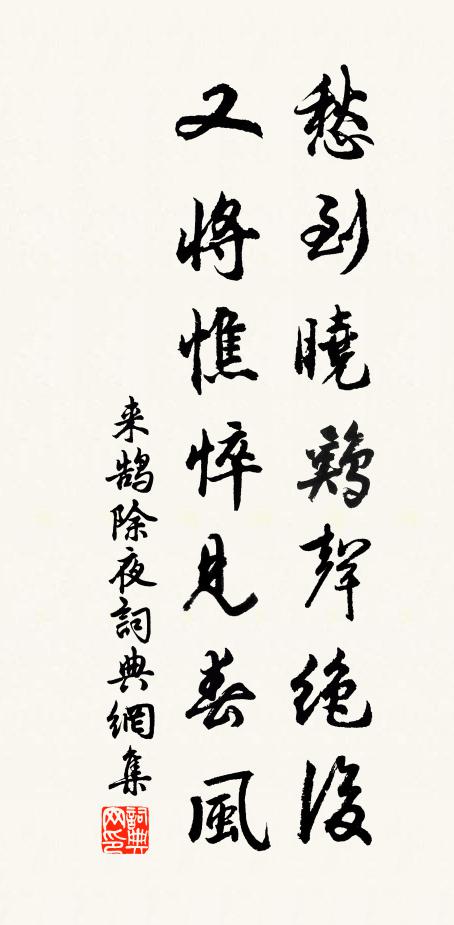 愁到曉鷄聲絶後
又將憔悴見春風
来鵠除夜詞典網集
詞典網印